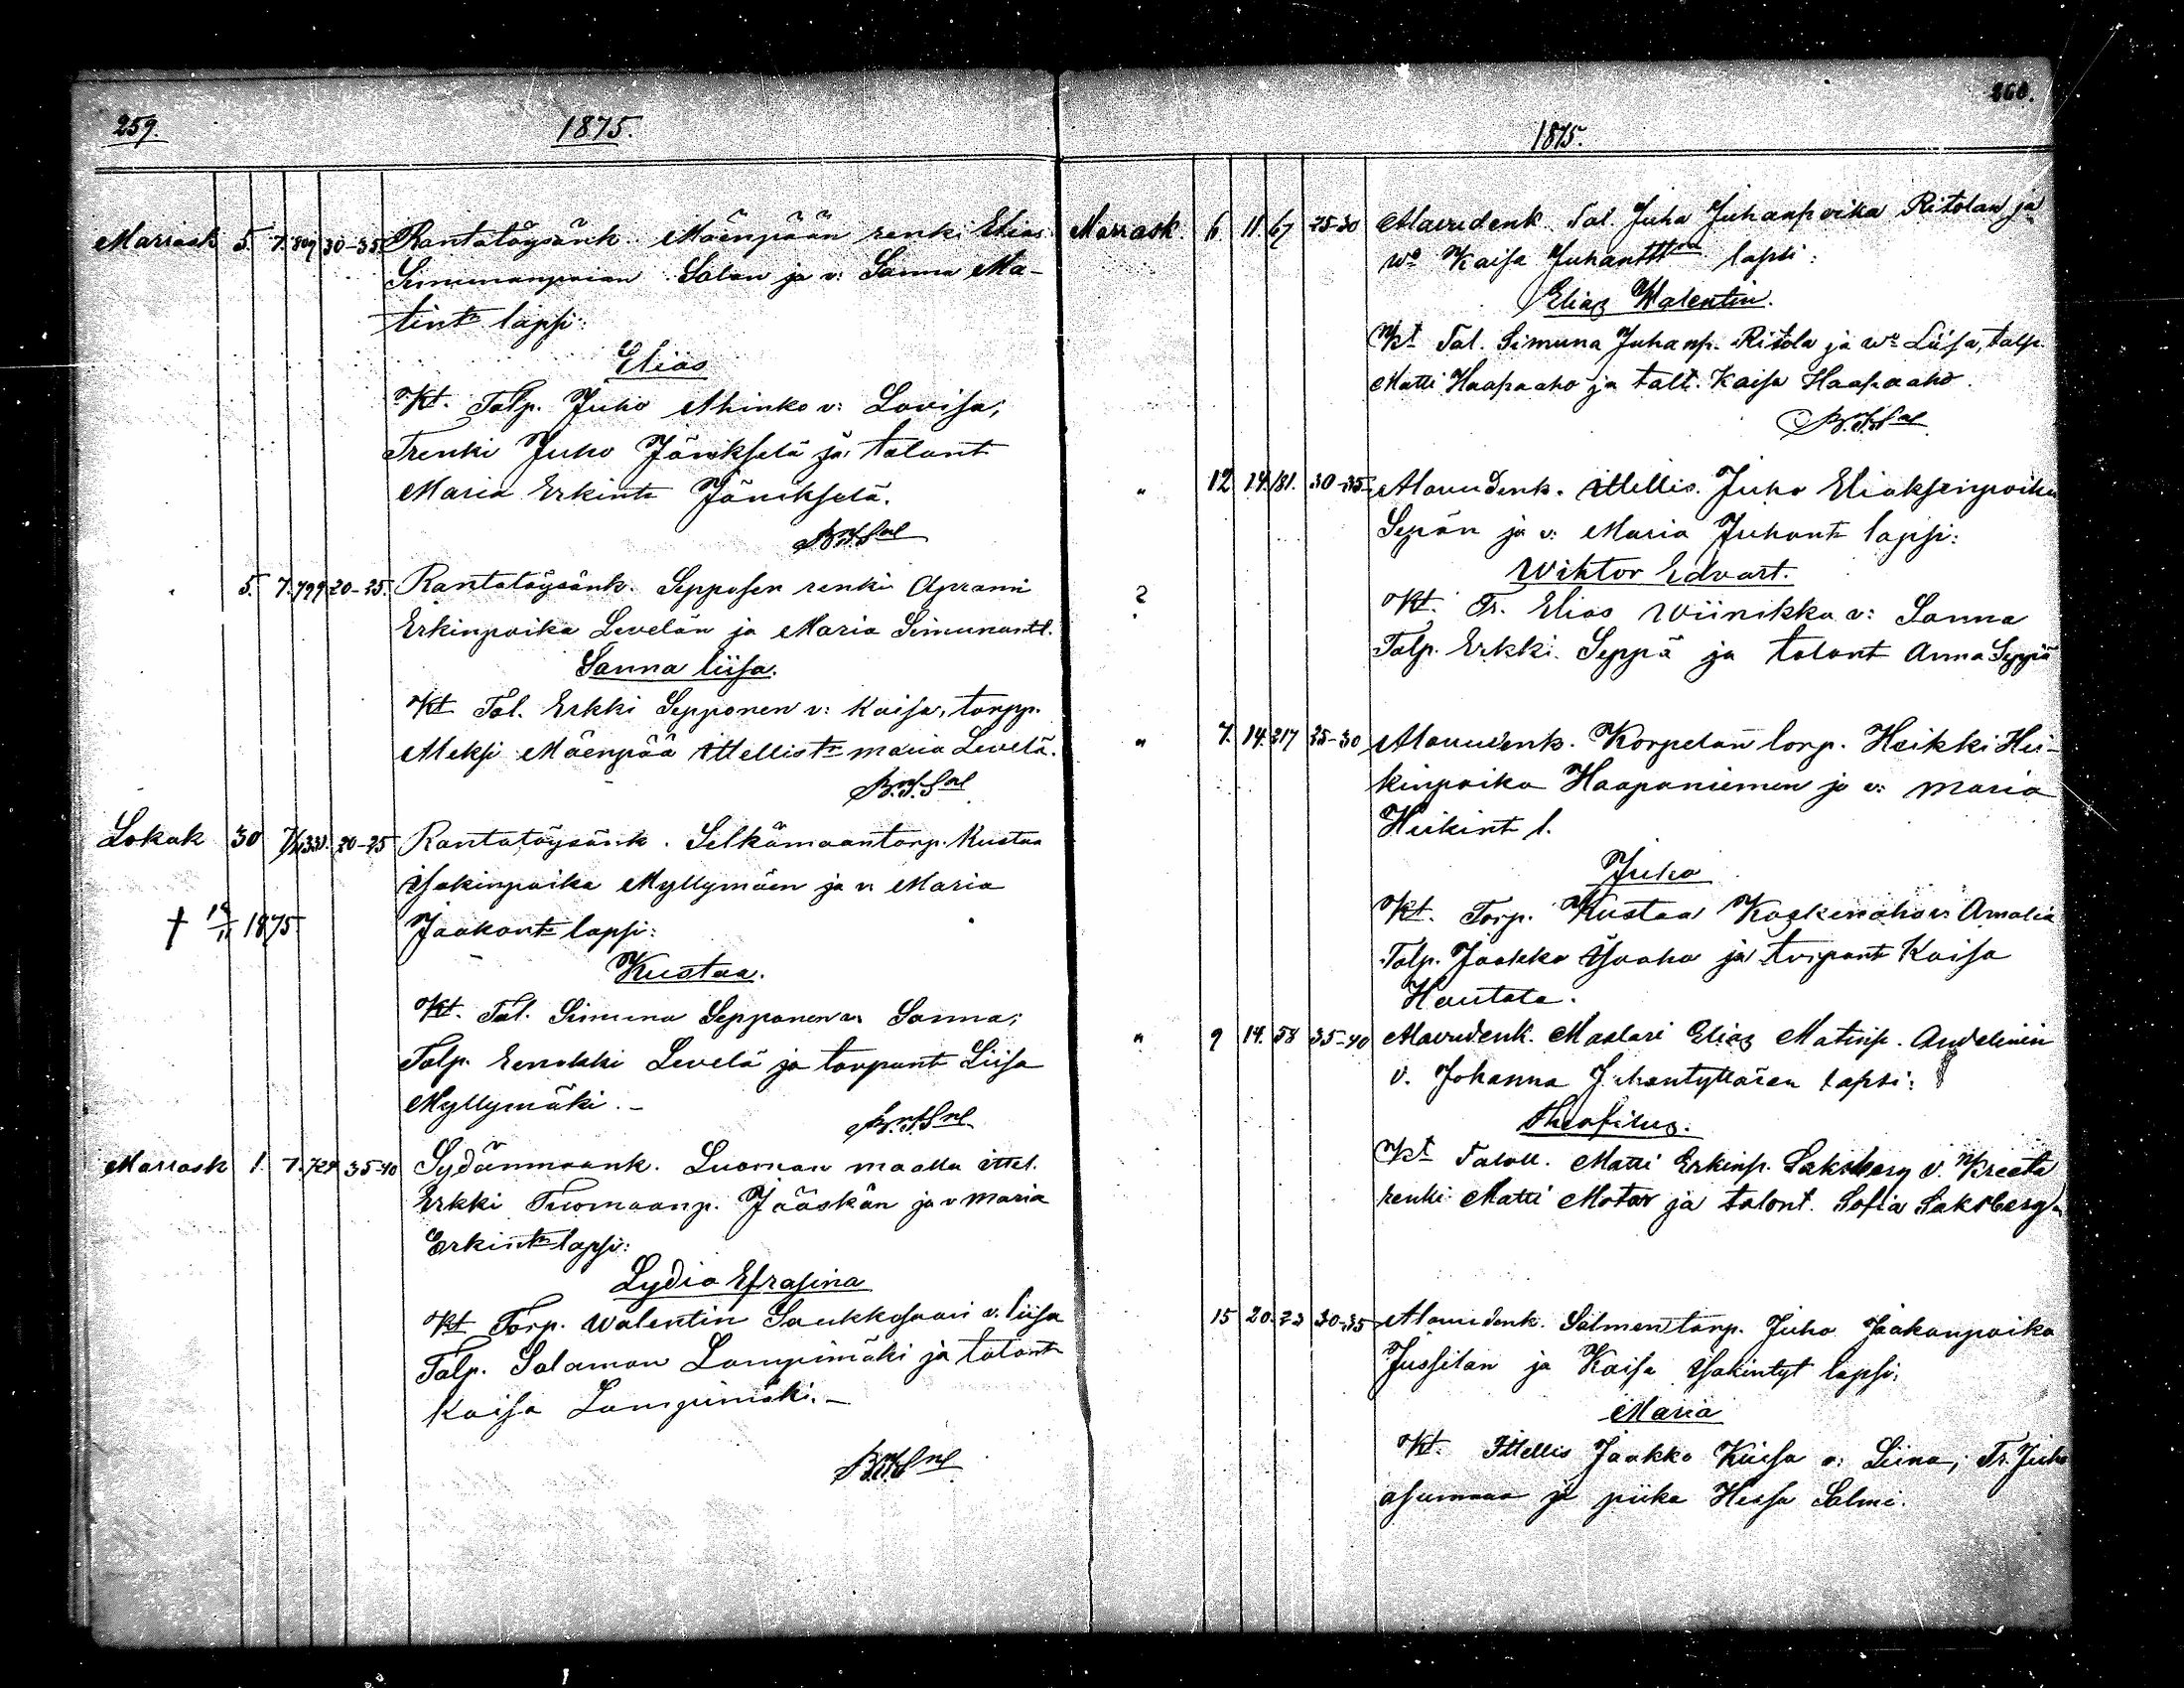 259.
1875.
Marrask 5. 7. 809 30-35 Rantatöysänk. Mäenpään renki Elias
Simunanpoian Salan ja v: Sanna Ma-
tint: lapsi:
Elias
Kt. Talp. Juho Ahinko v: Lovisa;
Trenki Juho Jäniksela ja talont
Maria Erkint: Jänikselä.
5. 7. 799 20-25. Rantatöysänk. Sepposen renki Aprami
Erkinpoika Levelän ja Maria Simunantl.
Sanna liisa.
Kt Tal. Erkki Sepponen v: Kaisa, torpp.
Aleksi Mäenpää ittellist: maria Levelä.
Lokak 30 20-25 Rantatöysänk. Selkämaantorp. Kustaa
Isakinpoika Myllymäen ja v: Maria
† 1875 Jaakont: lapsi:
Kustaa.
Kt. Tal. Simuna Sepponen v: Sanna;
Talp. Eenokki Levelä ja torpant Liisa
Myllymäki. -
Marrask 1. 7. 724 35-40 Sydänmaank. Luoman maalla ittel.
Erkki Tuomaanp. Jääskän ja v maria
Erkint: lapsi:
Lydia Efrasina
Kt Torp. Walentin Saukkosaari v. liisa
Talp. Salamon Lampimäki ja talont
Kaisa Lampimäki. -
260.
1875.
Marrask. 6. 11. 67 25-30 Alavudenk. Tal. Juha Juhanpoika Ritolan ja
wo Kaisa lapsi:
Elias Walentin.
Kt Tal. Simuna Juhanp. Ritola ja wo Liisa, talp.
Matti Haapaaho ja talt. Kaisa Haapaaho.
" 12 14. 181. 30-35 Alavudenk. ittellis. Juho Eliaksenpoika
Sepän ja v: Maria Juhant: lapsi:
Wihtor Edvart.
? Kt. Tr. Elias Wiinikka v: Sanna
Talp. Erkki Seppä ja talont Anna Seppä
" 7. 14. 217 25-30 Alavudenk. Korpelan torp. Heikki Hei-
kinpoika Haapaniemen ja v: maria
Heikint l.
Juho
Kt. Torp. Kustaa Koskenaho v: Amalia
Talp. Jaakko Isoaho ja torpant Kaisa
Hautala.
" 9 14. 58 35-40 Alavudenk. Maalari Elias Matinp. Andelinin
v. Johanna Juhantyttären lapsi:
Theofilus.
Kt Taloll. Matti Erkinp. Saksberg v. Kreeta
renki Matti Motar ja talont. Sofia Saksberg.
15 20. 23 30-35 Alavudenk. Salmen torp. Juho Jaakonpoika
Jussilan ja Kaisa Isakintyt lapsi;
Maria
Kt. Ittellis Jaakko Kuisa v: Liina; Tr. Juho
asunmaa ja piika Hessa Salmi.